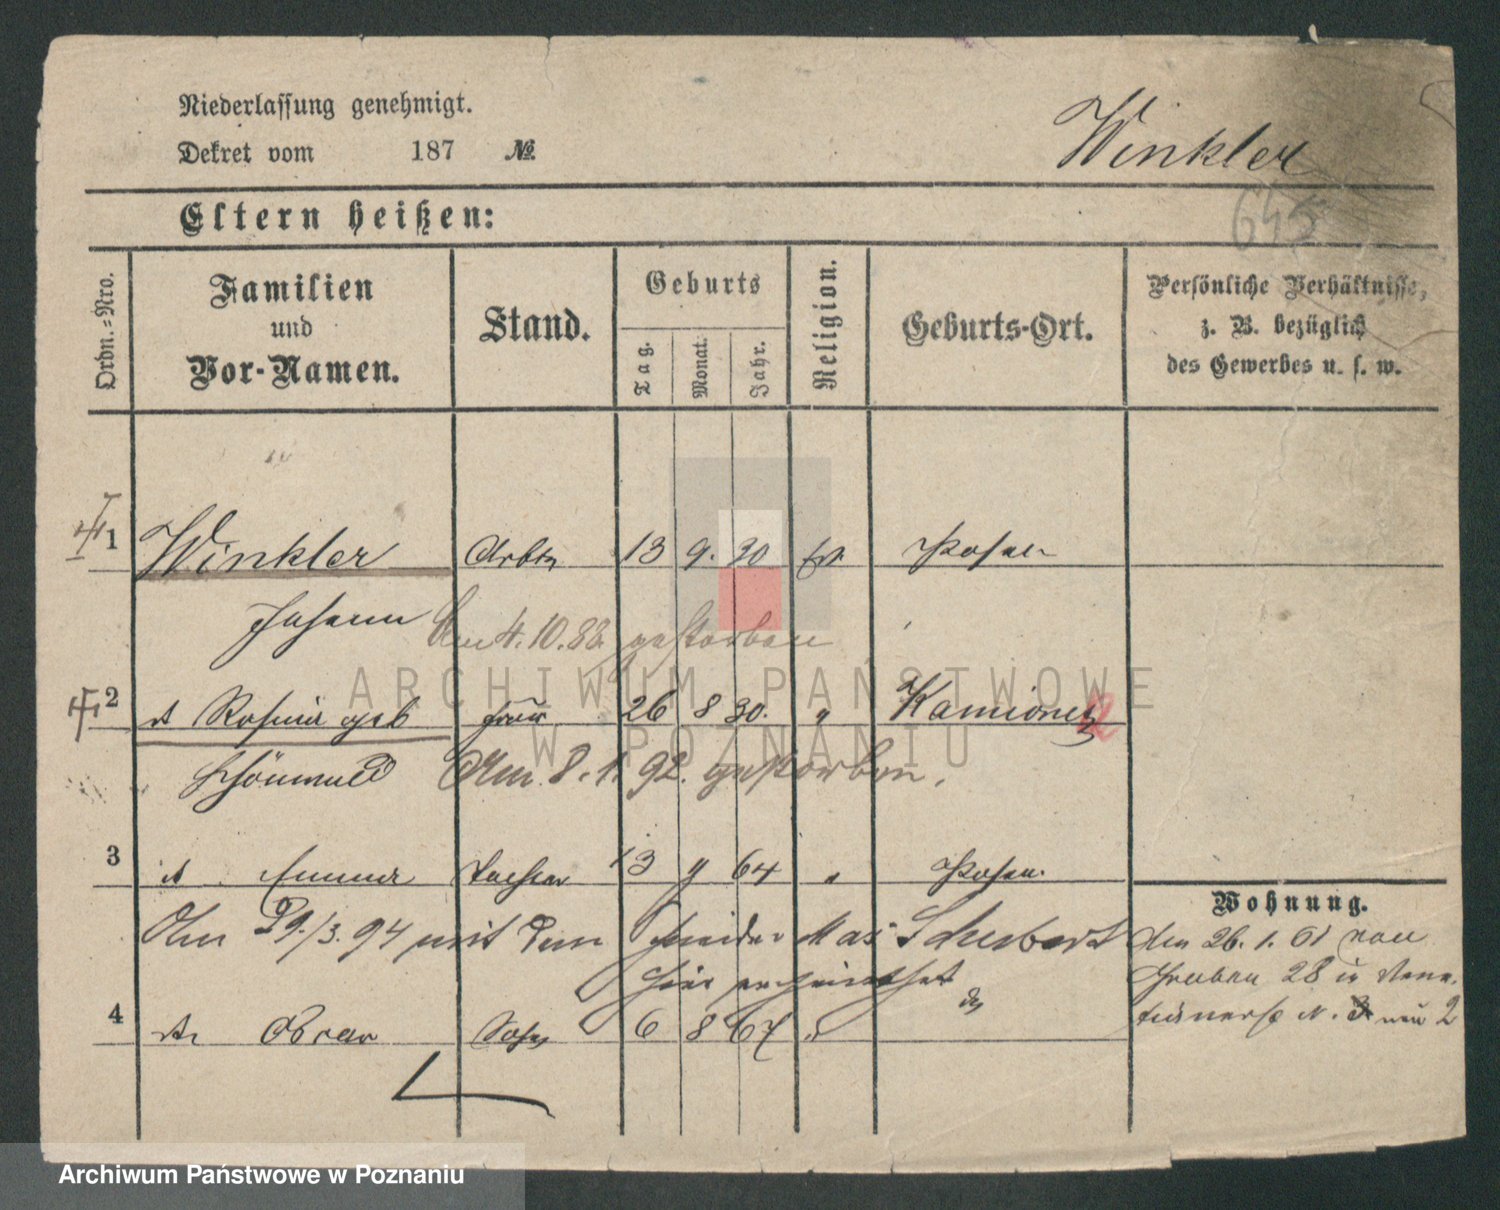 Niederlassung genehmigt.
Dekret vom 187 №
Winkler
645
Eltern heißen:
Ordn.=Nro.
Familien und Vor-Namen.
Stand.
Geburts
Tag. Monat. Jahr.
Religion.
Geburts-Ort.
Persönliche Verhältnisse, z. B. bezüglich des Gewerbes u. s. w.
1 Winkler 13 9. 30 Posen
Johann Am 4. 10. 88. gestorben
2 Rosina geb Frau 26 8 30. " Kamionek
Schönwald Am 8. 1. 92. gestorben.
3 Emma Tochter 13 9 64 " Posen.
Am 29./3. 94 mit dem Schneider Max Schubert
hier verheirathet
4 Oscar Sohn 6 8 67 "
Wohnung.
den 26. 1. 61 von
Graben 28 in
N. 3 neu 2
ARCHIWUM PAŃSTWOWE
W POZNANIU
Archiwum Państwowe w Poznaniu